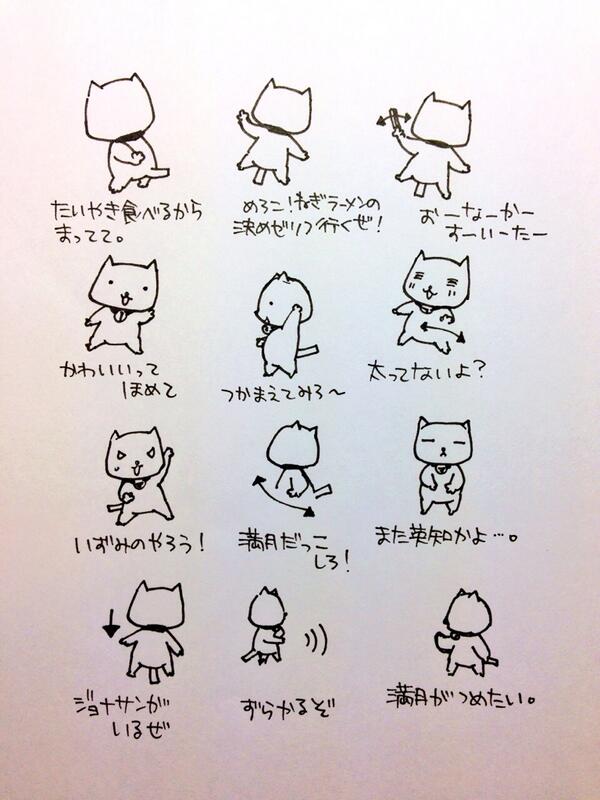 たいやき食べるから
まってて。
めろこ！ねぎラーメンの
決めゼリフ行くぜ！
おーなーかー
すーいーたー
かわいいって
ほめて
つかまえてみろ〜
太ってないよ？
いずみのやろう！
満月だっこ
しろ！
また英知かよ…。
ジョナサンが
いるぜ
ずらかるぞ
満月がつめたい。